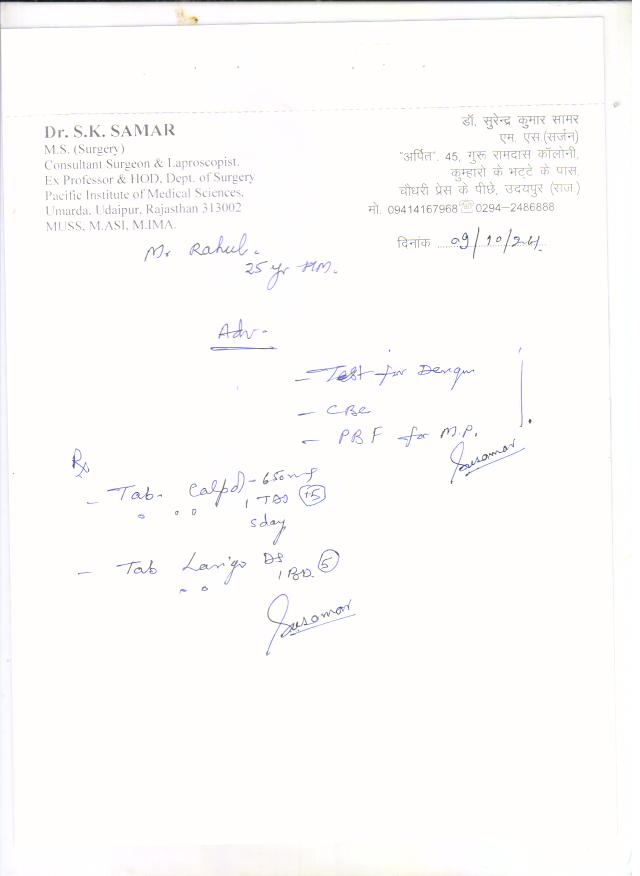 Dr. S.K. SAMAR
M.S. (Surgery)
Consultant Surgeon & Laproscopist.
Ex Professor & HOD, Dept. of Surgery
Pacific Institute of Medical Sciences,
Umarda, Udaipur, Rajasthan 313002
MUSS, M.ASI, M.IMA.
डॉ. सुरेन्द्र कुमार सामर
एम. एस.(सर्जन)
"अर्पित". 45, गुरू रामदास कॉलोनी,
कुम्हारो के भट्टे के पास,
चौधरी प्रेस के पीछे, उदयपुर (राज.)
मो. 09414167968 ☏ 0294-2486888
दिनांक 09/10/24
Mr Rahul.
25 yr M.
Adv -
- Test for Dengu
- CBC
- PBF for M.P.
Susamar
Rx
- Tab. Calpol - 650 mg
1 TDS
5 day
- Tab Lariago DS
1 BD. 5
Susamar